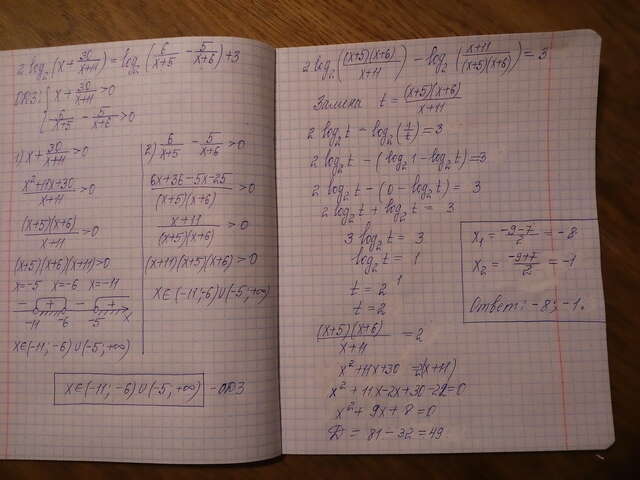 2 log₂(x + 30/(x+11)) = log₂(6/(x+5) − 5/(x+6)) + 3
ОДЗ: { x + 30/(x+11) > 0
{ 6/(x+5) − 5/(x+6) > 0
1) x + 30/(x+11) > 0
(x²+11x+30)/(x+11) > 0
((x+5)(x+6))/(x+11) > 0
(x+5)(x+6)(x+11) > 0
x=-5 x=-6 x=-11
− + − +
-11 -6 -5 x
x∈(-11; -6) ∪ (-5; +∞)
2) 6/(x+5) − 5/(x+6) > 0
(6x+36−5x−25)/((x+5)(x+6)) > 0
(x+11)/((x+5)(x+6)) > 0
(x+11)(x+5)(x+6) > 0
x∈(-11; -6) ∪ (-5; +∞)
x∈(-11; -6) ∪ (-5; +∞) - ОДЗ
2 log₂((x+5)(x+6)/(x+11)) − log₂((x+11)/((x+5)(x+6))) = 3
Замена t = ((x+5)(x+6))/(x+11)
2 log₂t − log₂(1/t) = 3
2 log₂t − (log₂1 − log₂t) = 3
2 log₂t − (0 − log₂t) = 3
2 log₂t + log₂t = 3
3 log₂t = 3
log₂t = 1
t = 2¹
t = 2
((x+5)(x+6))/(x+11) = 2
x²+11x+30 = 2(x+11)
x²+11x−2x+30−22=0
x²+9x+8=0
D = 81−32 = 49
x₁ = (-9-7)/2 = -8
x₂ = (-9+7)/2 = -1
Ответ: -8; -1.